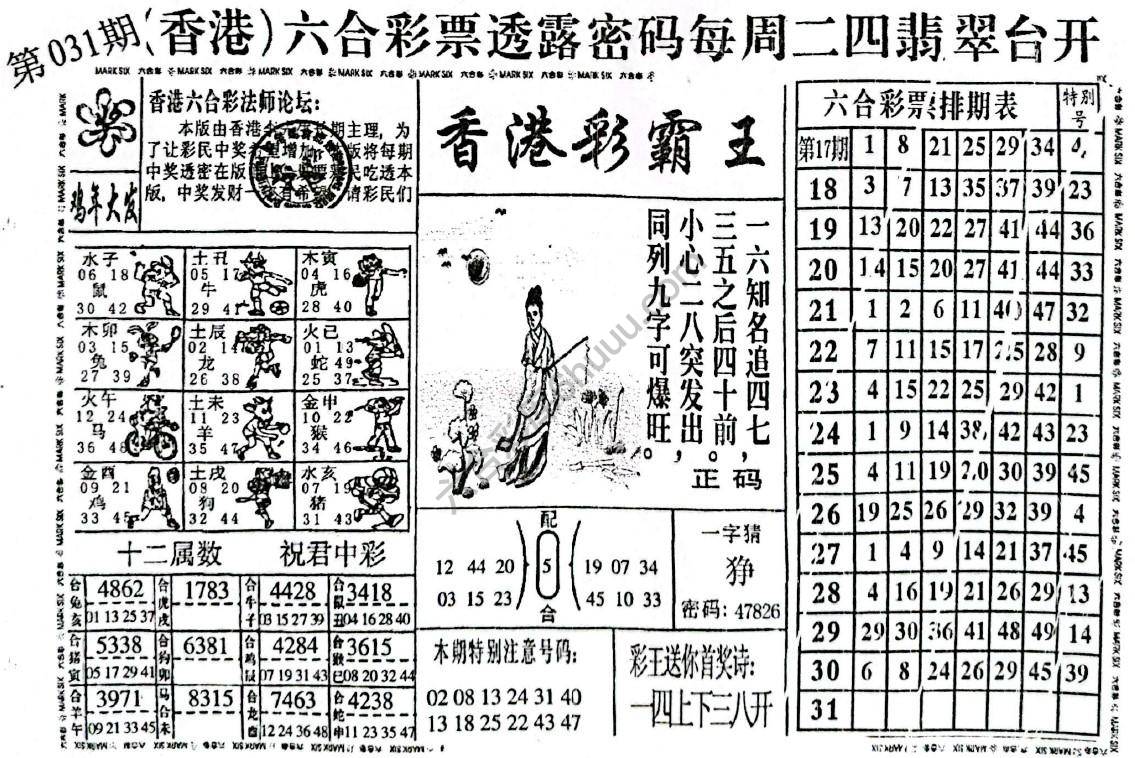 第031期(香港)六合彩票透露密码每周二四翡翠台开
MARK SIX 六合彩 MARK SIX 六合彩 MARK SIX 六合彩 MARK SIX
鸡年大发
香港六合彩法师论坛:
本版由香港
期主理,为
了让彩民中奖
版将每期
中奖透密在版
民吃透本
版,中奖发财一
请彩民们
水子
06 18
鼠
30 42
土丑
05 17
牛
29 41
木寅
04 16
虎
28 40
木卯
03 15
兔
27 39
土辰
02 14
龙
26 38
火已
01 13
蛇 49
25 37
火午
12 24
马
36 48
土未
11 23
羊
35 47
金申
10 22
猴
34 46
金酉
09 21
鸡
33 45
土戌
08 20
狗
32 44
水亥
07 19
猪
31 43
十二属数 祝君中彩
4862 1783 4428 3418
01 13 25 37 03 15 27 39 04 16 28 40
5338 6381 4284 3615
05 17 29 41 07 19 31 43 08 20 32 44
3971 8315 7463 4238
09 21 33 45 12 24 36 48 11 23 35 47
香港彩霸王
一六知名追四七,
三五之后四十前。
小心二八突发出,
同列九字可爆旺。
正码
配
12 44 20 5 19 07 34
03 15 23 45 10 33
合
一字猜
狰
密码:47826
本期特别注意号码:
02 08 13 24 31 40
13 18 25 22 43 47
彩王送你首奖诗:
一四上下三八开
六合彩票排期表 特别号
第17期 1 8 21 25 29 34
18 3 7 13 35 37 39 23
19 13 20 22 27 41 44 36
20 14 15 20 27 41 44 33
21 1 2 6 11 40 47 32
22 7 11 15 17 25 28 9
23 4 15 22 25 29 42 1
24 1 9 14 38 42 43 23
25 4 11 19 20 30 39 45
26 19 25 26 29 32 39 4
27 1 4 9 14 21 37 45
28 4 16 19 21 26 29 13
29 29 30 36 41 48 49 14
30 6 8 24 26 29 45 39
31